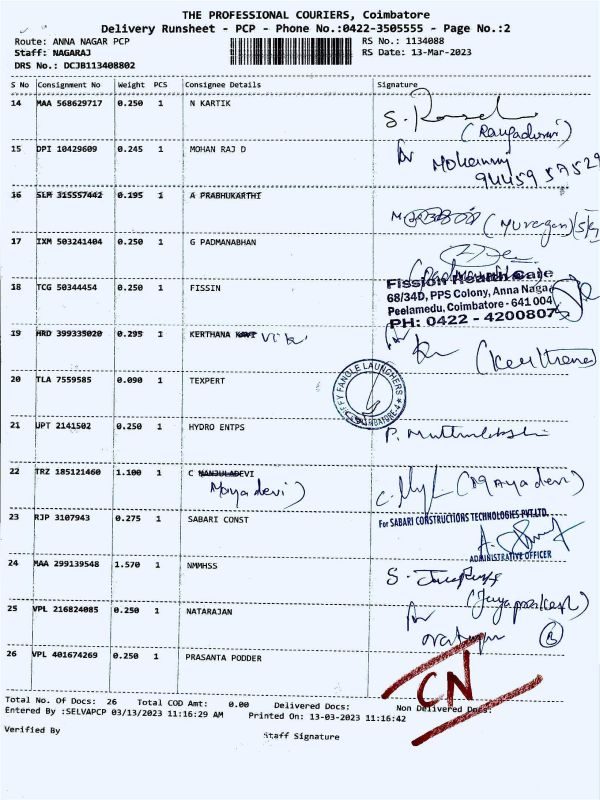 THE PROFESSIONAL COURIERS, Coimbatore
Delivery Runsheet - PCP - Phone No.:0422-3505555 - Page No.:2
Route: ANNA NAGAR PCP RS No.: 1134088
Staff: NAGARAJ RS Date: 13-Mar-2023
DRS No.: DCJB113408802
S No Consignment No Weight PCS Consignee Details Signature
14 MAA 568629717 0.250 1 N KARTIK
15 DPI 10429609 0.245 1 MOHAN RAJ D
16 SLM 315557442 0.195 1 A PRABHUKARTHI (Murugan)
17 IXM 503241404 0.250 1 G PADMANABHAN
18 TCG 50344454 0.250 1 FISSIN
Fission Health Care
68/34D, PPS Colony, Anna Nagar
Peelamedu, Coimbatore - 641 004
PH: 0422 - 4200807
19 HRD 399335020 0.295 1 KERTHANA (Kerthana)
20 TLA 7559585 0.090 1 TEXPERT
21 UPT 2141502 0.250 1 HYDRO ENTPS
22 TRZ 185121460 1.100 1 C MANJULADEVI
Mayadevi) (Mayadevi)
23 RJP 3107943 0.275 1 SABARI CONST
For SABARI CONSTRUCTIONS TECHNOLOGIES PVT.LTD.
ADMINISTRATIVE OFFICER
24 MAA 299139548 1.570 1 NMMHSS
25 VPL 216824085 0.250 1 NATARAJAN
26 VPL 401674269 0.250 1 PRASANTA PODDER
CN
Total No. Of Docs: 26 Total COD Amt: 0.00 Delivered Docs: Non Delivered Docs:
Entered By :SELVAPCP 03/13/2023 11:16:29 AM Printed On: 13-03-2023 11:16:42
Verified By Staff Signature